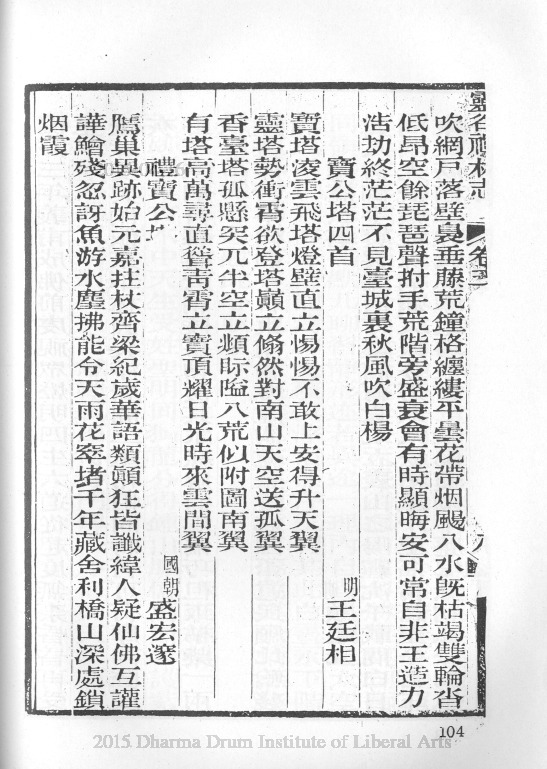 靈谷禪林志
吹網戶落壁裊垂藤荒鐘格纏縷平曇花帶烟颺八水旣枯竭雙輪沓
低昂空餘琵琶聲拊手荒階旁盛衰會有時顯晦安可常自非王造力
浩劫終茫茫不見臺城裏秋風吹白楊
寶公塔四首 明 王廷相
寶塔凌雲飛塔燈壁直立惕惕不敢上安得升天翼
靈塔勢衝霄欲登塔巓立翛然對南山天空送孤翼
香臺塔孤懸突兀半空立頫眎隘八荒似附圖南翼
有塔高萬尋直聳靑霄立寶頂耀日光時來雲間翼
禮寶公 國朝 盛宏邃
鷹巢異跡始元嘉拄杖齊梁紀歲華語類顚狂皆讖緯人疑仙佛互讙
譁鱠殘忽訝魚游水麈拂能令天雨花窣堵千年藏舍利橋山深處鎖
烟霞
104
2015 Dharma Drum Institute of Liberal Arts